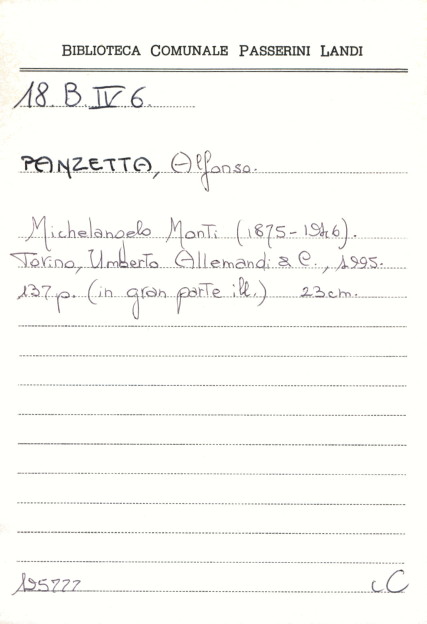 BIBLIOTECA COMUNALE PASSERINI LANDI
18. B IV 6.
PANZETTA, Alfonso.
Michelangelo Monti (1875-1946).
Torino, Umberto Allemandi & C., 1995.
137 p. (in gran parte ill.) 23 cm.
195777
cC